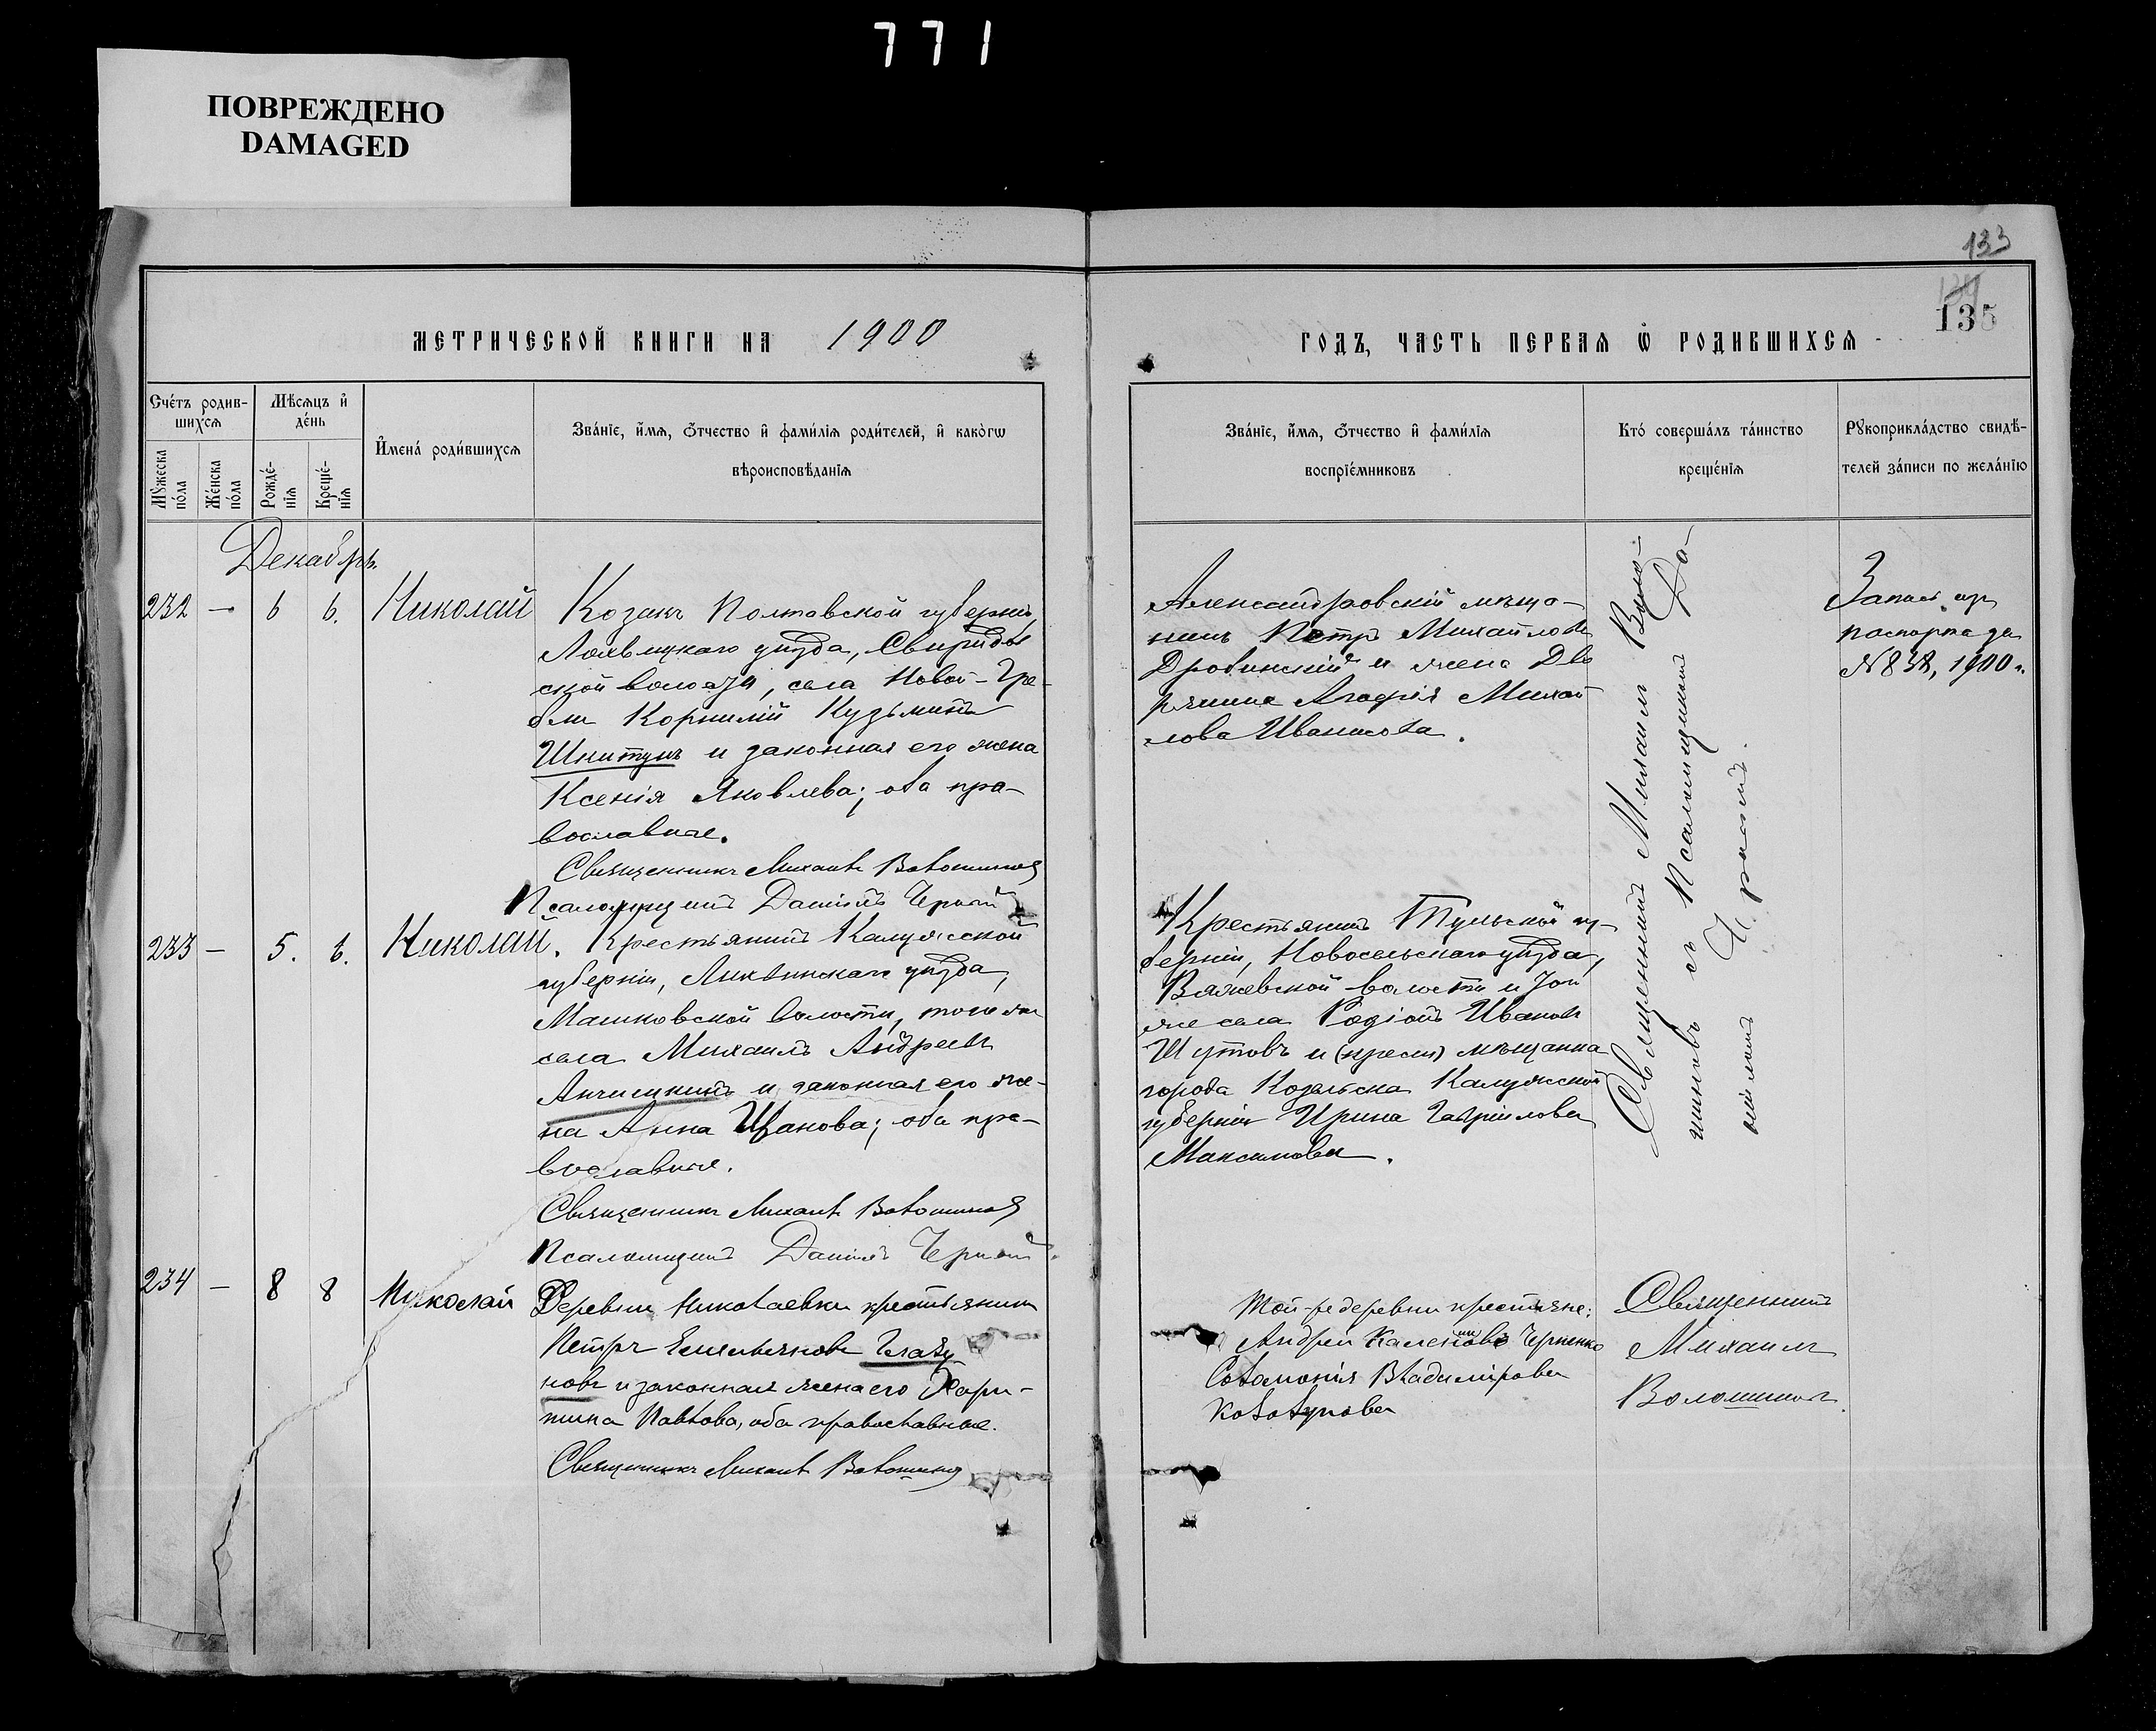 771
ПОВРЕЖДЕНО
DAMAGED
133
135
МЕТРИЧЕСКОЙ КНИГИ НА 1900
ГОДЪ, ЧАСТЬ ПЕРВАЯ Ѡ РОДИВШИХСЯ
Счетъ родив-
шихся
Мѣсяцъ и
день
Мужеска
пола
Женска
пола
Рожде-
нія
Креще-
нія
Имена родившихся
Званіе, имя, отчество и фамилія родителей, и какогѡ
вѣроисповѣданія
Званіе, имя, отчество и фамилія
воспріемниковъ
Кто совершалъ таинство
крещенія
Рукоприкладство свидѣ-
телей записи по желанію
Декабрь.
232 — 6 6. Николай
Козакъ Полтавской губерніи,
уѣзда,
ской волости, села Новой-Гре-
бли Корнилій Кузьминъ
и законная его жена
Ксенія Яковлева; оба пра-
вославные.
Священникъ Михаилъ Волошиновъ
Псаломщикъ Даніилъ Черный
Александровскій мѣща-
нинъ Петръ Михайловъ
Дробинскій и жена Дво
рянина Агафія Михай
лова
Священникъ Михаилъ Воло-
шиновъ съ Псаломщикомъ Да-
ніиломъ Чернымъ.
Запись изъ
паспорта за
№ 838, 1900 г.
233 — 5. 6. Николай.
Крестьянинъ Калужской
губерніи, Лихвинскаго уѣзда,
Машковской волости, того же
села Михаилъ Андреевъ
и законная его же-
на Анна Иванова; оба пра-
вославные.
Священникъ Михаилъ Волошиновъ
Псаломщикъ Даніилъ Черный.
Крестьянинъ Тульской гу-
берніи, Новосельскаго уѣзда,
Вяжевской волости и той
же села Родіонъ Ивановъ
Шутовъ и мѣщанка
города Козельска Калужской
губерніи Ирина Гавріилова
Максимова.
234 — 8 8 Николай
Деревни Николаевки крестьянинъ
Петръ Емельяновъ Глазу
новъ и законная жена его Хари-
тина Павлова, оба православные.
Священникъ Михаилъ Волошиновъ
Той-же деревни крестьяне:
Андрей Черненко
Соломонія Владимірова
Колотунова
Священникъ
Михаилъ
Волошиновъ.